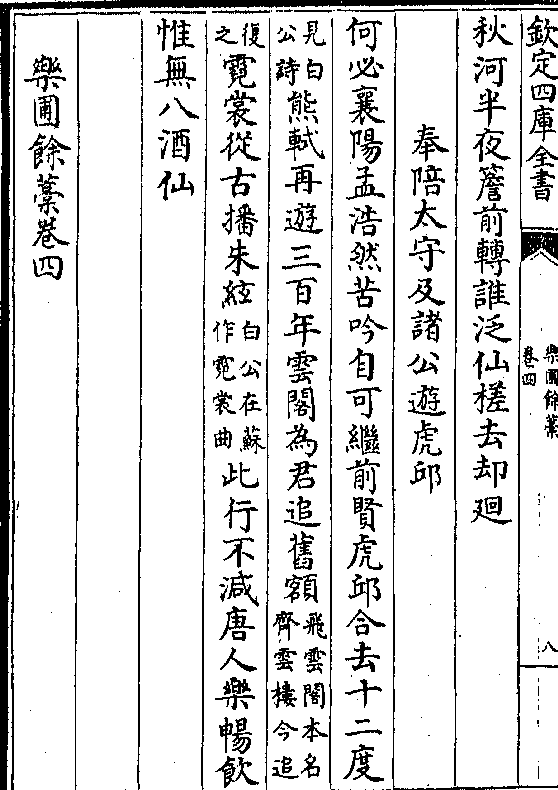 欽定四庫全書
樂圃餘藁
卷四
八
秋河半夜簷前轉誰泛仙槎去却廻
奉陪太守及諸公遊虎邱
何必襄陽孟浩然苦吟自可繼前賢虎邱合去十二度
見白
公詩
熊軾再遊三百年雲閣為君追舊額
飛雲閣本名
齊雲樓今追
復
之
霓裳從古播朱絃
白公在蘇
作霓裳曲
此行不減唐人樂暢飲
惟無八酒仙
樂圃餘藁卷四